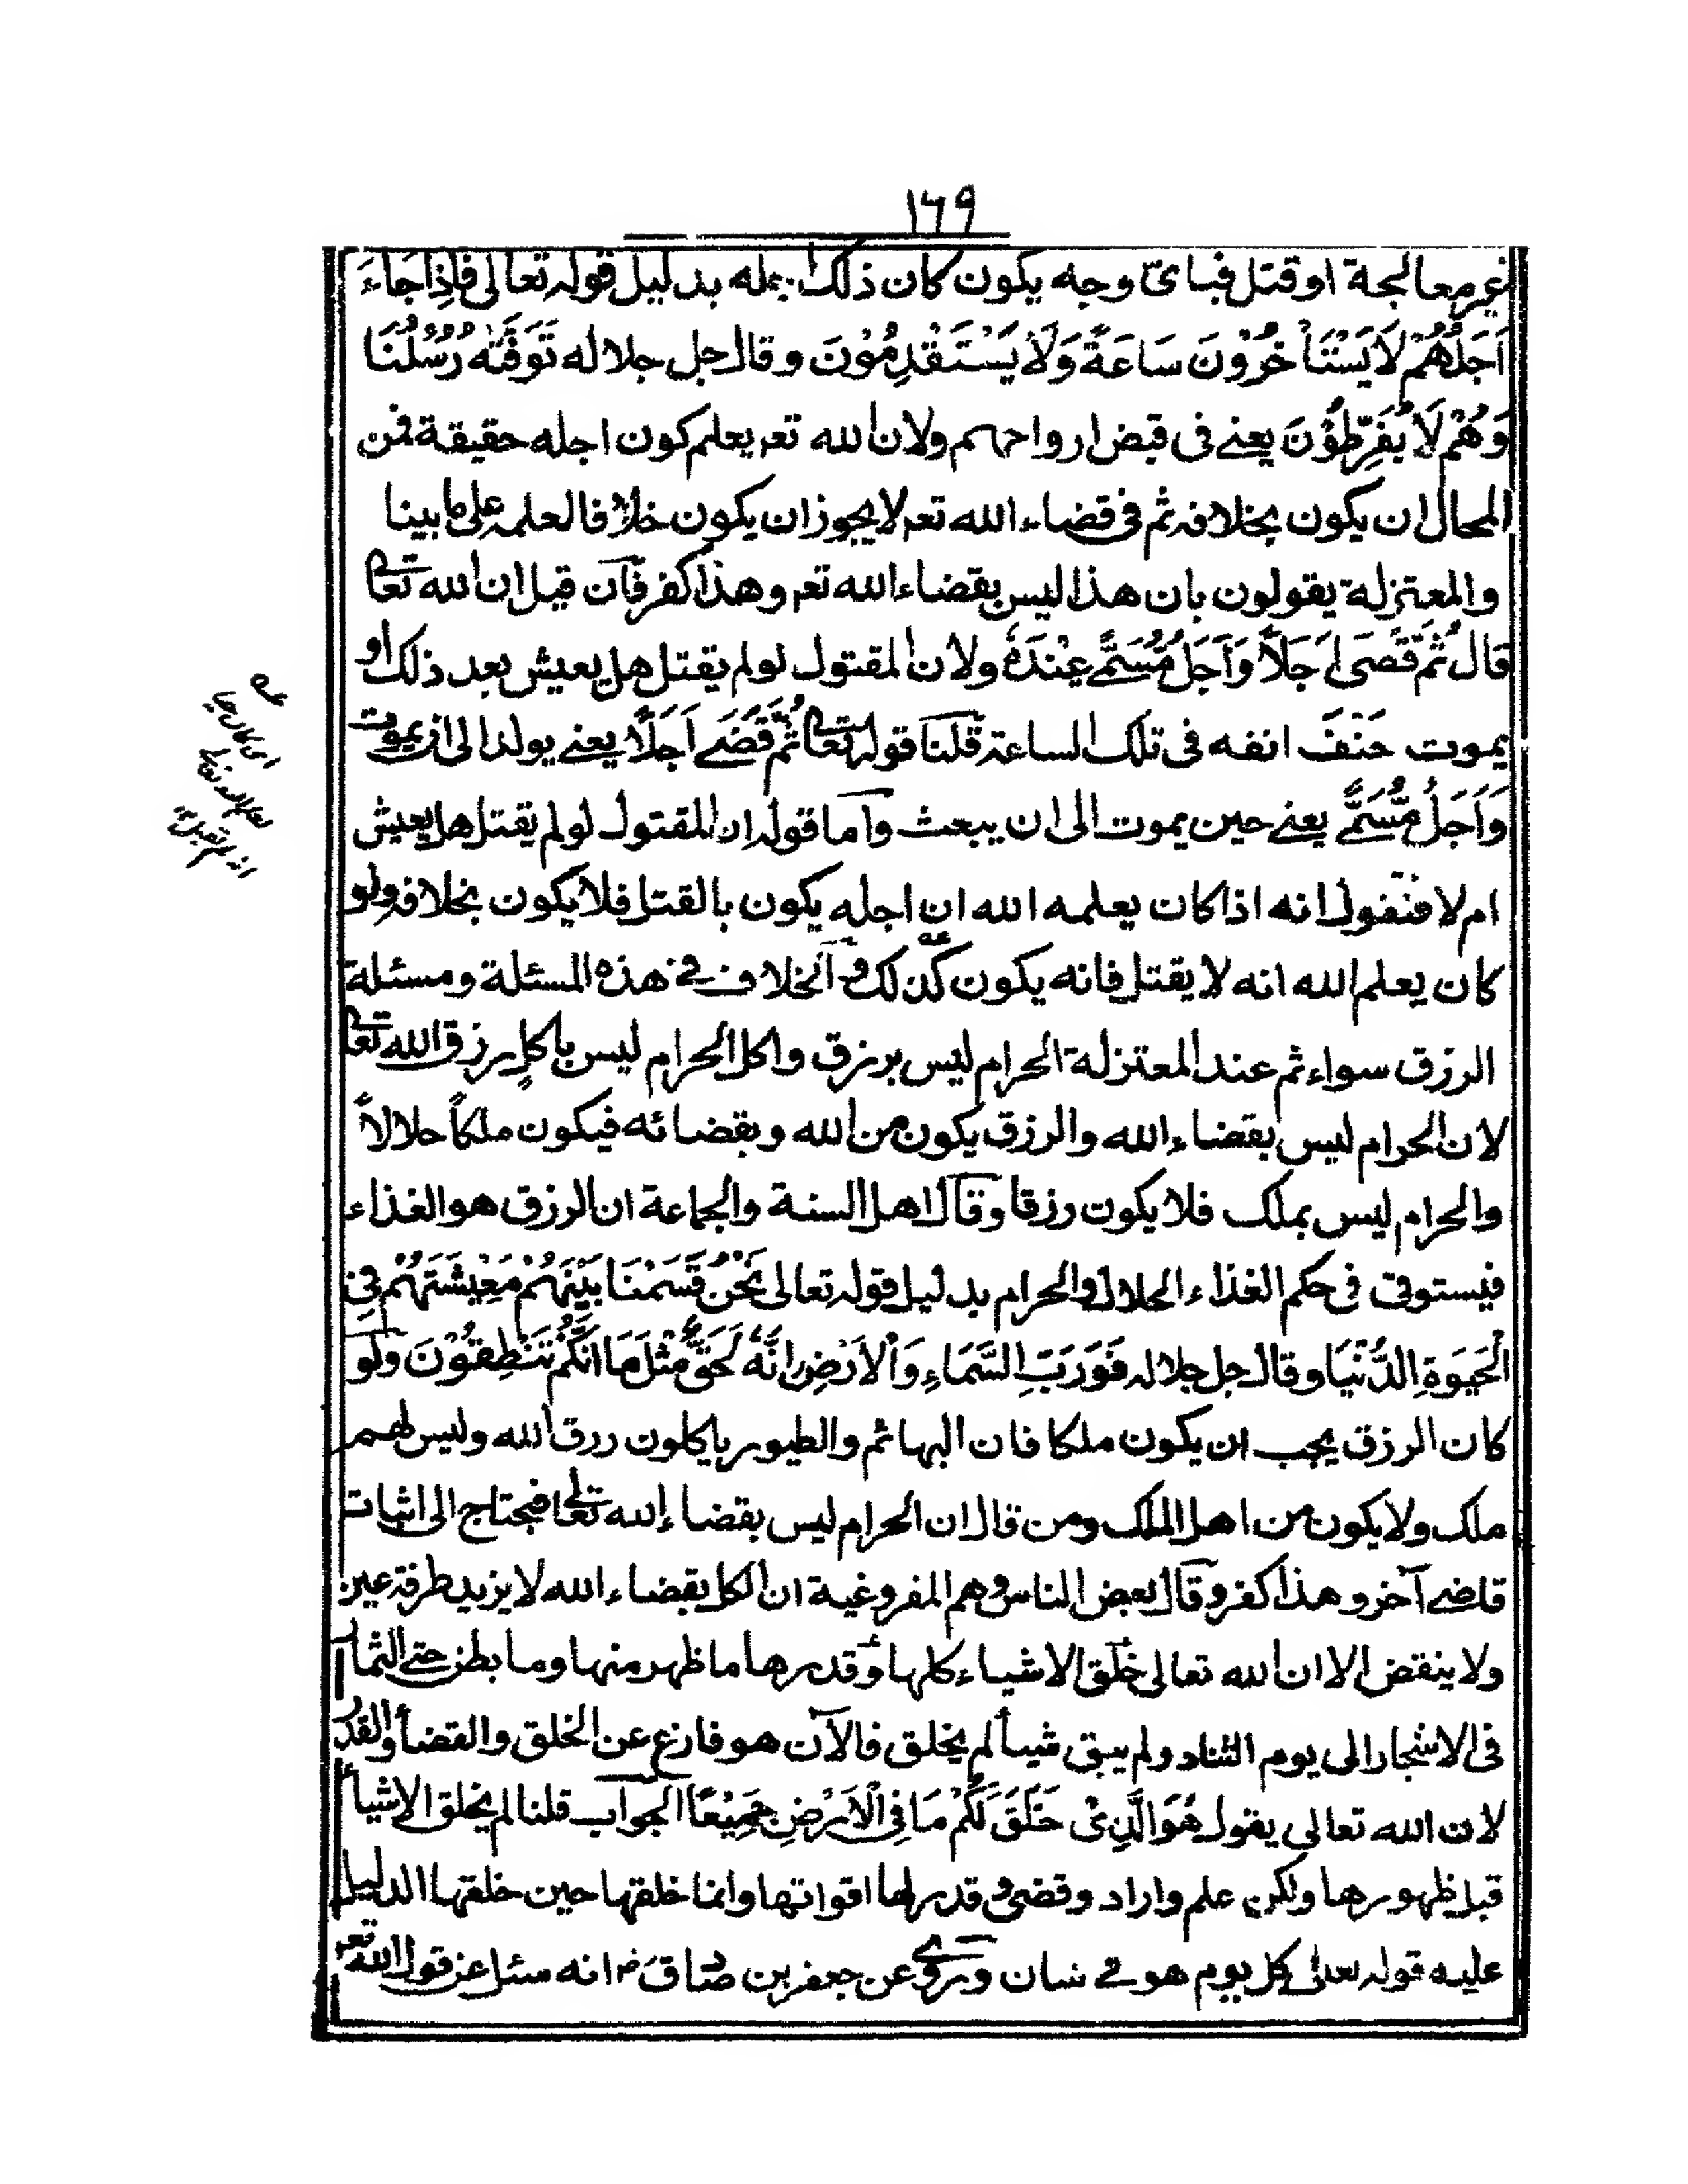 ١٦٩
غير معالجة او قتل فباىّ وجه يكون كان ذلك اجله بدليل قوله تعالى فَإِذَا جَاءَ
اَجَلُهُمْ لَا يَسْتَأْخِرُوْنَ سَاعَةً وَلَا يَسْتَقْدِمُوْنَ وقال جل جلاله تَوَفَّتْهُ رُسُلُنَا
وَهُمْ لَا يُفَرِّطُوْنَ يعنے فى قبض ارواحهم ولان الله تعر يعلم كون اجله حقيقة فمن
المحال ان يكون بخلافه ثم فى قضاء الله تعر لا يجوز ان يكون خلافا لعلمه على ما بينا
والمعتزلة يقولون بان هذا ليس بقضاء الله تعر وهذا كفر فآن قيل ان الله تعالى
قال ثُمَّ قَضٰى اَجَلًا وَاَجَلٌ مُّسَمًّى عِنْدَهٗ ولان المقتول لو لم يقتل هل يعيش بعد ذلك او
يموت حَتْفَ انفه فى تلك الساعة قلنا قوله تعالى ثُمَّ قَضٰے اَجَلًا يعنے يولد الى ان يموت
وَاَجَلٌ مُّسَمًّے يعنے حين يموت الى ان يبعث وآما قوله ان المقتول لو لم يقتل هل يعيش
ام لا فنقول انه اذا كان يعلمه الله ان اجله يكون بالقتل فلا يكون بخلافه ولو
كان يعلم الله انه لا يقتل فانه يكون كذلك و الخلاف فے هذه المسئلة ومسئلة
الرزق سواء ثم عند المعتزلة الحرام ليس برزق واكل الحرام ليس باكل رزق الله تعالى
لان الحرام ليس بقضاء الله والرزق يكون من الله وبقضائه فيكون ملكاً حلالاً
والحرام ليس بملك فلا يكون رزقا وقال اهل السنة والجماعة ان الرزق هو الغذاء
فيستوى فى حكم الغذاء الحلال والحرام بدليل قوله تعالى نَحْنُ قَسَمْنَا بَيْنَهُمْ مَعِيْشَتَهُمْ فِى
الْحَيٰوةِ الدُّنْيَا وقال جل جلاله فَوَرَبِّ السَّمَاءِ وَالْاَرْضِ اِنَّهٗ لَحَقٌّ مِّثْلَ مَا اَنَّكُمْ تَنْطِقُوْنَ ولو
كان الرزق يجب ان يكون ملكا فان البهائم والطيور ياكلون رزق الله وليس لهم
ملك ولا يكون من اهل الملك ومن قال ان الحرام ليس بقضاء الله تعالى فيحتاج الى اثبات
قاضے آخر وهذا كفر وقال بعض الناس وهم المفروغية ان الكل بقضاء الله لا يزيد طرفة عين
ولا ينقض الا ان الله تعالى خلق الاشياء كلها وقدرها ما ظهر منها وما بطن حتے الثمار
فى الاشجار الى يوم التناد ولم يبق شيأ لم يخلق فالآن هو فارغ عن الخلق والقضأ والقدر
لان الله تعالى يقول هُوَ الَّذِىْ خَلَقَ لَكُمْ مَا فِى الْاَرْضِ جَمِيْعًا الجواب قلنا لم يخلق الاشيأ
قبل ظهورها ولكن علم واراد وقضى و قدر لها اقواتها وانما خلقها حين خلقها الدليل
عليه قوله تعالى كل يوم هو فے شان وروى عن جعفر بن صادق رض انه سئل عن قول الله تعر